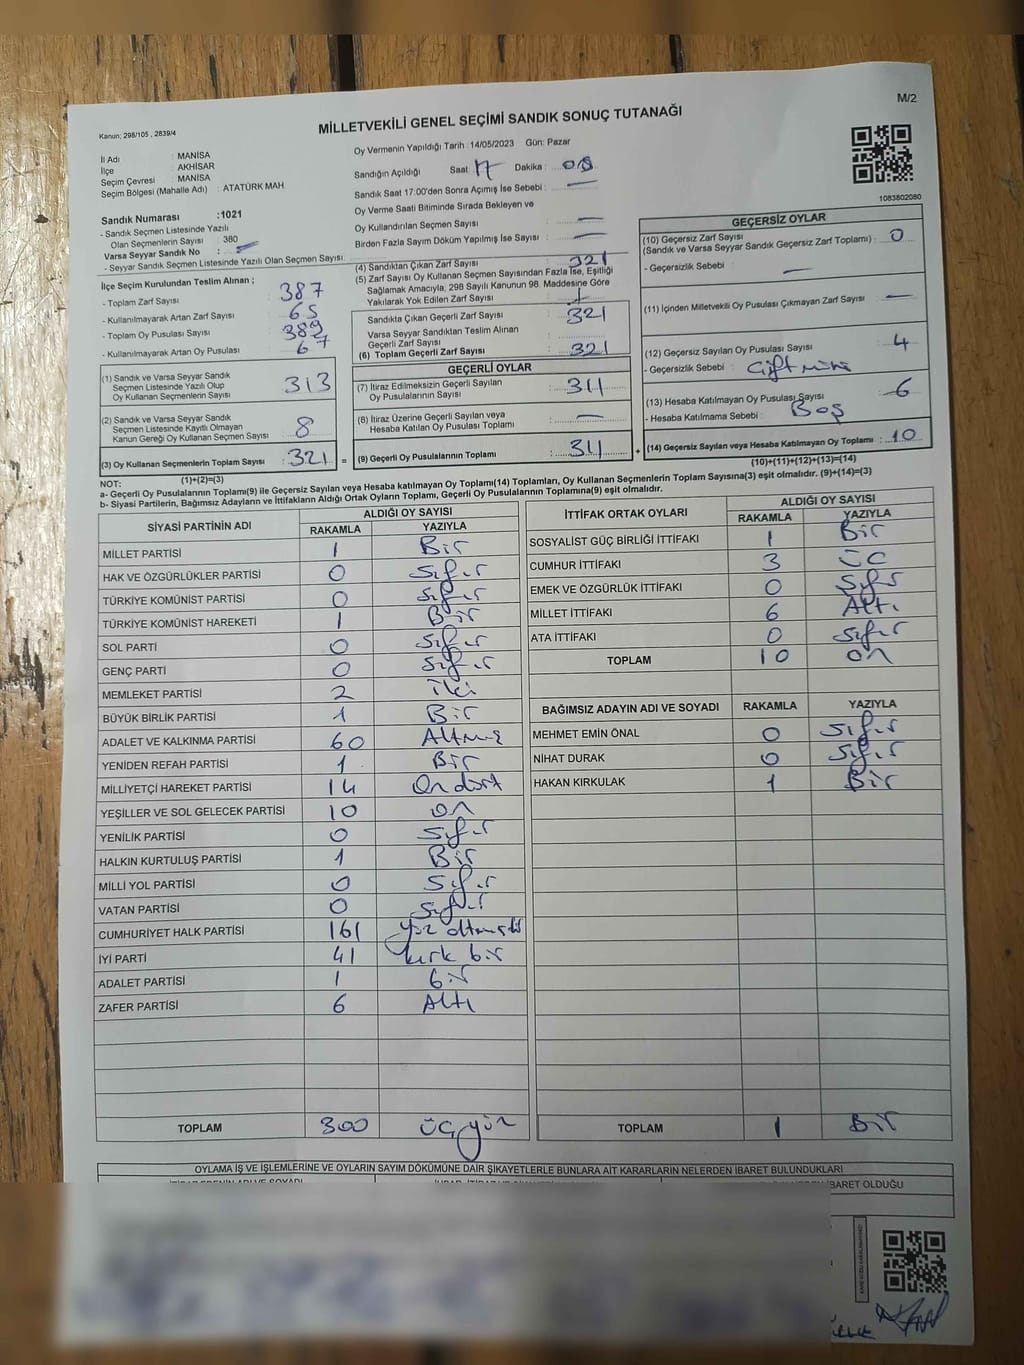 M/2
Kanun; 298/105 , 2839/4
MİLLETVEKİLİ GENEL SEÇİMİ SANDIK SONUÇ TUTANAĞI
İl Adı : MANİSA
İlçe : AKHİSAR
Seçim Çevresi : MANİSA
Seçim Bölgesi (Mahalle Adı) : ATATÜRK MAH
Sandık Numarası :1021
- Sandık Seçmen Listesinde Yazılı
Olan Seçmenlerin Sayısı : 380
Varsa Seyyar Sandık No :
- Seyyar Sandık Seçmen Listesinde Yazılı Olan Seçmen Sayısı.
Oy Vermenin Yapıldığı Tarih :14/05/2023 Gün: Pazar
Sandığın Açıldığı Saat : 17 Dakika : 08
Sandık Saat 17:00'den Sonra Açımış İse Sebebi : —
Oy Verme Saati Bitiminde Sırada Bekleyen ve
Oy Kullandırılan Seçmen Sayısı : —
Birden Fazla Sayım Döküm Yapılmış İse Sayısı : —
1083802080
İlçe Seçim Kurulundan Teslim Alınan ;
- Toplam Zarf Sayısı : 387
- Kullanılmayarak Artan Zarf Sayısı : 65
- Toplam Oy Pusulası Sayısı : 389
- Kullanılmayarak Artan Oy Pusulası : 67
(1) Sandık ve Varsa Seyyar Sandık
Seçmen Listesinde Yazılı Olup
Oy Kullanan Seçmenlerin Sayısı : 313
(2) Sandık ve Varsa Seyyar Sandık
Seçmen Listesinde Kayıtlı Olmayan
Kanun Gereği Oy Kullanan Seçmen Sayısı : 8
(3) Oy Kullanan Seçmenlerin Toplam Sayısı : 321
(1)+(2)=(3)
(4) Sandıktan Çıkan Zarf Sayısı : 321
(5) Zarf Sayısı Oy Kullanan Seçmen Sayısından Fazla İse, Eşitliği
Sağlamak Amacıyla, 298 Sayılı Kanunun 98. Maddesine Göre
Yakılarak Yok Edilen Zarf Sayısı :
Sandıkta Çıkan Geçerli Zarf Sayısı : 321
Varsa Seyyar Sandıktan Teslim Alınan
Geçerli Zarf Sayısı :
(6) Toplam Geçerli Zarf Sayısı : 321
GEÇERLİ OYLAR
(7) İtiraz Edilmeksizin Geçerli Sayılan
Oy Pusulalarının Sayısı : 311
(8) İtiraz Üzerine Geçerli Sayılan veya
Hesaba Katılan Oy Pusulası Toplamı : —
(9) Geçerli Oy Pusulalarının Toplamı : 311
GEÇERSİZ OYLAR
(10) Geçersiz Zarf Sayısı
(Sandık ve Varsa Seyyar Sandık Geçersiz Zarf Toplamı) : 0
- Geçersizlik Sebebi : —
(11) İçinden Milletvekili Oy Pusulası Çıkmayan Zarf Sayısı : —
(12) Geçersiz Sayılan Oy Pusulası Sayısı : 4
- Geçersizlik Sebebi : Çift
(13) Hesaba Katılmayan Oy Pusulası Sayısı : 6
- Hesaba Katılmama Sebebi : Boş
(14) Geçersiz Sayılan veya Hesaba Katılmayan Oy Toplamı : 10
(10)+(11)+(12)+(13)=(14)
NOT:
a- Geçerli Oy Pusulalarının Toplam(9) ile Geçersiz Sayılan veya Hesaba katılmayan Oy Toplam(14) Toplamları, Oy Kullanan Seçmenlerin Toplam Sayısına(3) eşit olmalıdır. (9)+(14)=(3)
b- Siyasi Partilerin, Bağımsız Adayların ve İttifakların Aldığı Ortak Oyların Toplamı, Geçerli Oy Pusulalarının Toplamına(9) eşit olmalıdır.
SİYASİ PARTİNİN ADI ALDIĞI OY SAYISI
RAKAMLA YAZIYLA
MİLLET PARTİSİ 1 Bir
HAK VE ÖZGÜRLÜKLER PARTİSİ 0 Sıfır
TÜRKİYE KOMÜNİST PARTİSİ 0 Sıfır
TÜRKİYE KOMÜNİST HAREKETİ 1 Bir
SOL PARTİ 0 Sıfır
GENÇ PARTİ 0 Sıfır
MEMLEKET PARTİSİ 2 İki
BÜYÜK BİRLİK PARTİSİ 1 Bir
ADALET VE KALKINMA PARTİSİ 60 Altmış
YENİDEN REFAH PARTİSİ 1 Bir
MİLLİYETÇİ HAREKET PARTİSİ 14 On dört
YEŞİLLER VE SOL GELECEK PARTİSİ 10 on
YENİLİK PARTİSİ 0 Sıfır
HALKIN KURTULUŞ PARTİSİ 1 Bir
MİLLİ YOL PARTİSİ 0 Sıfır
VATAN PARTİSİ 0 Sıfır
CUMHURİYET HALK PARTİSİ 161 yüz altmışbir
İYİ PARTİ 41 kırk bir
ADALET PARTİSİ 1 bir
ZAFER PARTİSİ 6 Altı
TOPLAM 300 üçyüz
İTTİFAK ORTAK OYLARI ALDIĞI OY SAYISI
RAKAMLA YAZIYLA
SOSYALİST GÜÇ BİRLİĞİ İTTİFAKI 1 Bir
CUMHUR İTTİFAKI 3 üc
EMEK VE ÖZGÜRLÜK İTTİFAKI 0 Sıfır
MİLLET İTTİFAKI 6 Altı
ATA İTTİFAKI 0 Sıfır
TOPLAM 10 on
BAĞIMSIZ ADAYIN ADI VE SOYADI RAKAMLA YAZIYLA
MEHMET EMİN ÖNAL 0 Sıfır
NİHAT DURAK 0 Sıfır
HAKAN KIRKULAK 1 Bir
TOPLAM 1 Bir
OYLAMA İŞ VE İŞLEMLERİNE VE OYLARIN SAYIM DÖKÜMÜNE DAİR ŞİKAYETLERLE BUNLARA AİT KARARLARIN NELERDEN İBARET BULUNDUKLARI
İBARET OLDUĞU